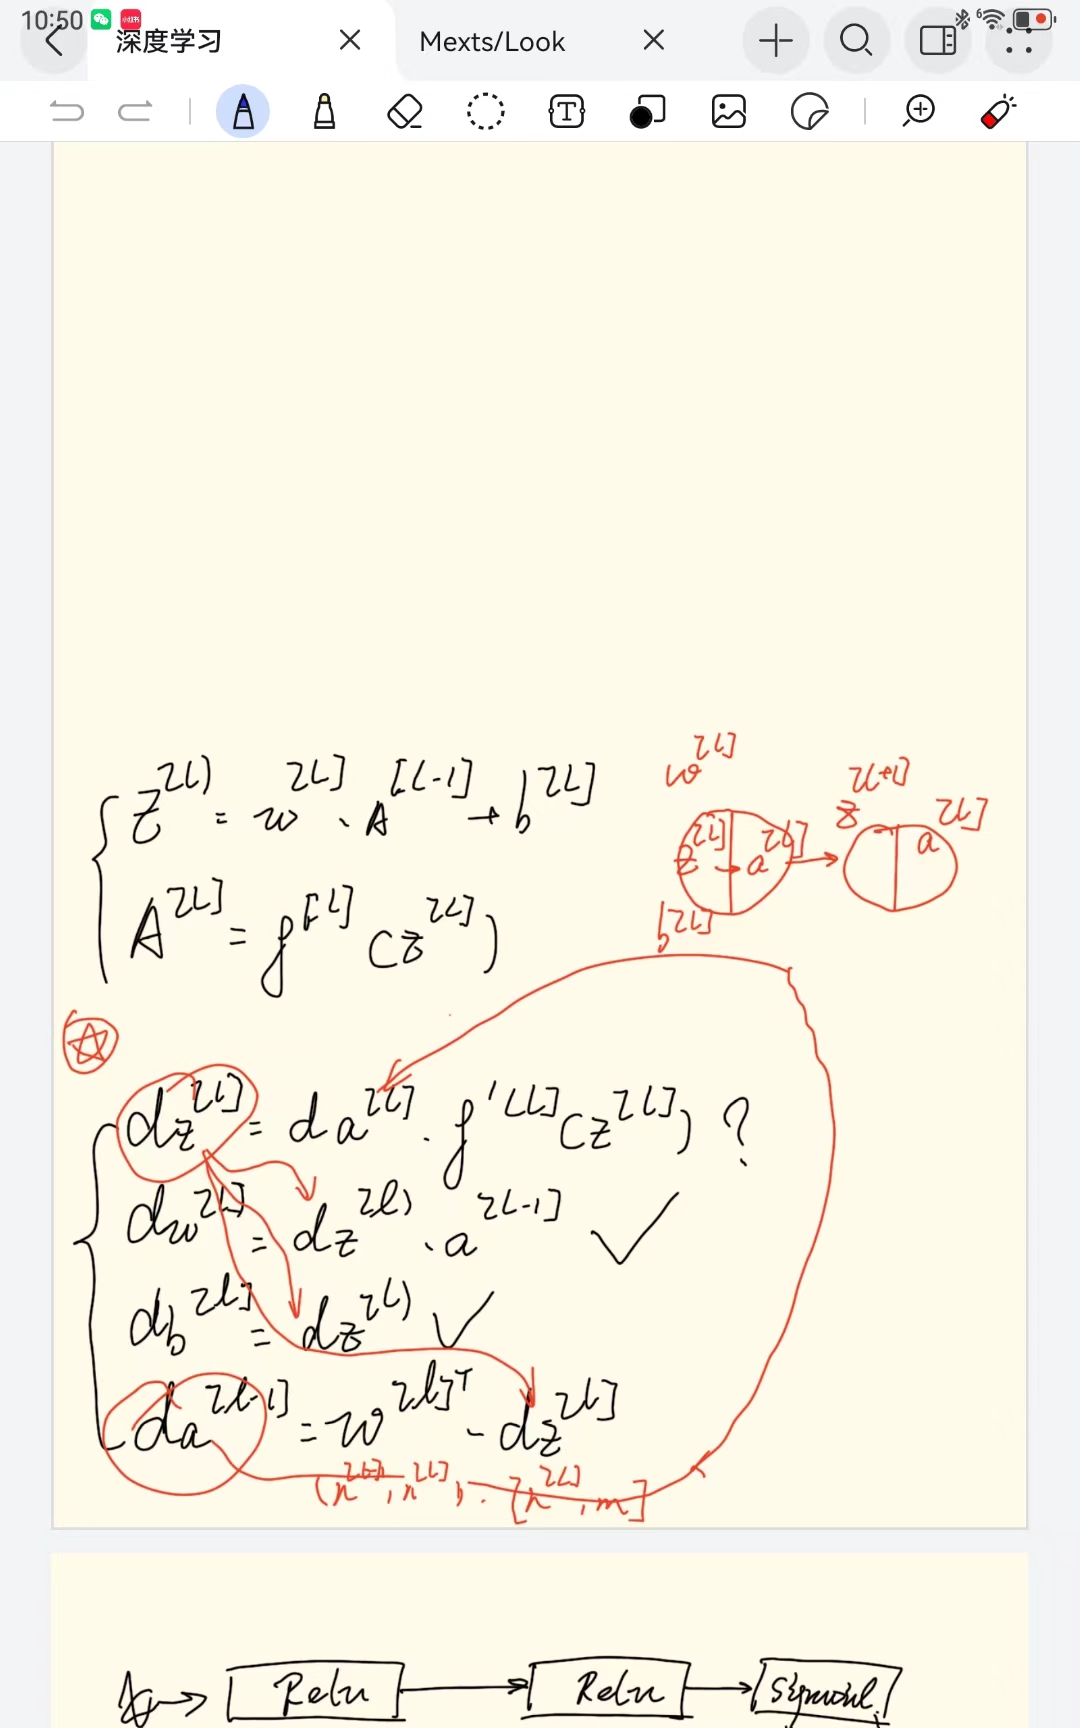 10:50
深度学习
Mexts/Look
T
w[l]
z[l] = w[l] · A[l-1] + b[l]
z[l+1]
a[l]
z[l] → a[l]
A[l] = f[l](z[l])
b[l]
dz[l] = da[l] · f'[l](z[l]) ?
dw[l] = dz[l] · a[l-1] ✓
db[l] = dz[l] ✓
da[l-1] = w[l]T - dz[l]
(n[l-1], n[l]) · [n[l], m]
Relu → Relu → Sigmoid